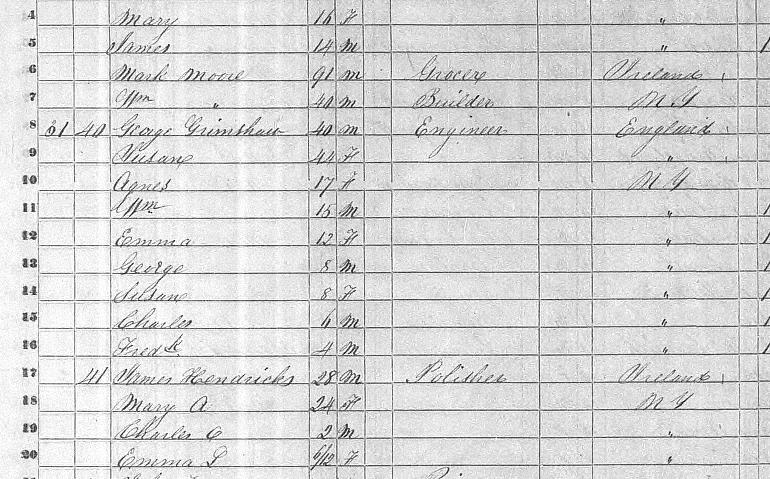 4 Mary 16 F "
5 James 14 M " 1
6 Mark Moore 91 M Grocer Ireland 1
7 Wm " 40 M Builder N Y
8 31 40 George Grimshaw 40 M Engineer England 1
9 Susan 44 F " 1
10 Agnes 17 F N Y
11 Wm 15 M " 1
12 Emma 12 F " 1
13 George 8 M " 1
14 Susan 8 F " 1
15 Charles 6 M " 1
16 Fredk 4 M " 1
17 41 James Hendricks 28 M Polisher Ireland 1
18 Mary A 24 F N Y
19 Charles C 2 M "
20 Emma L 6/12 F "